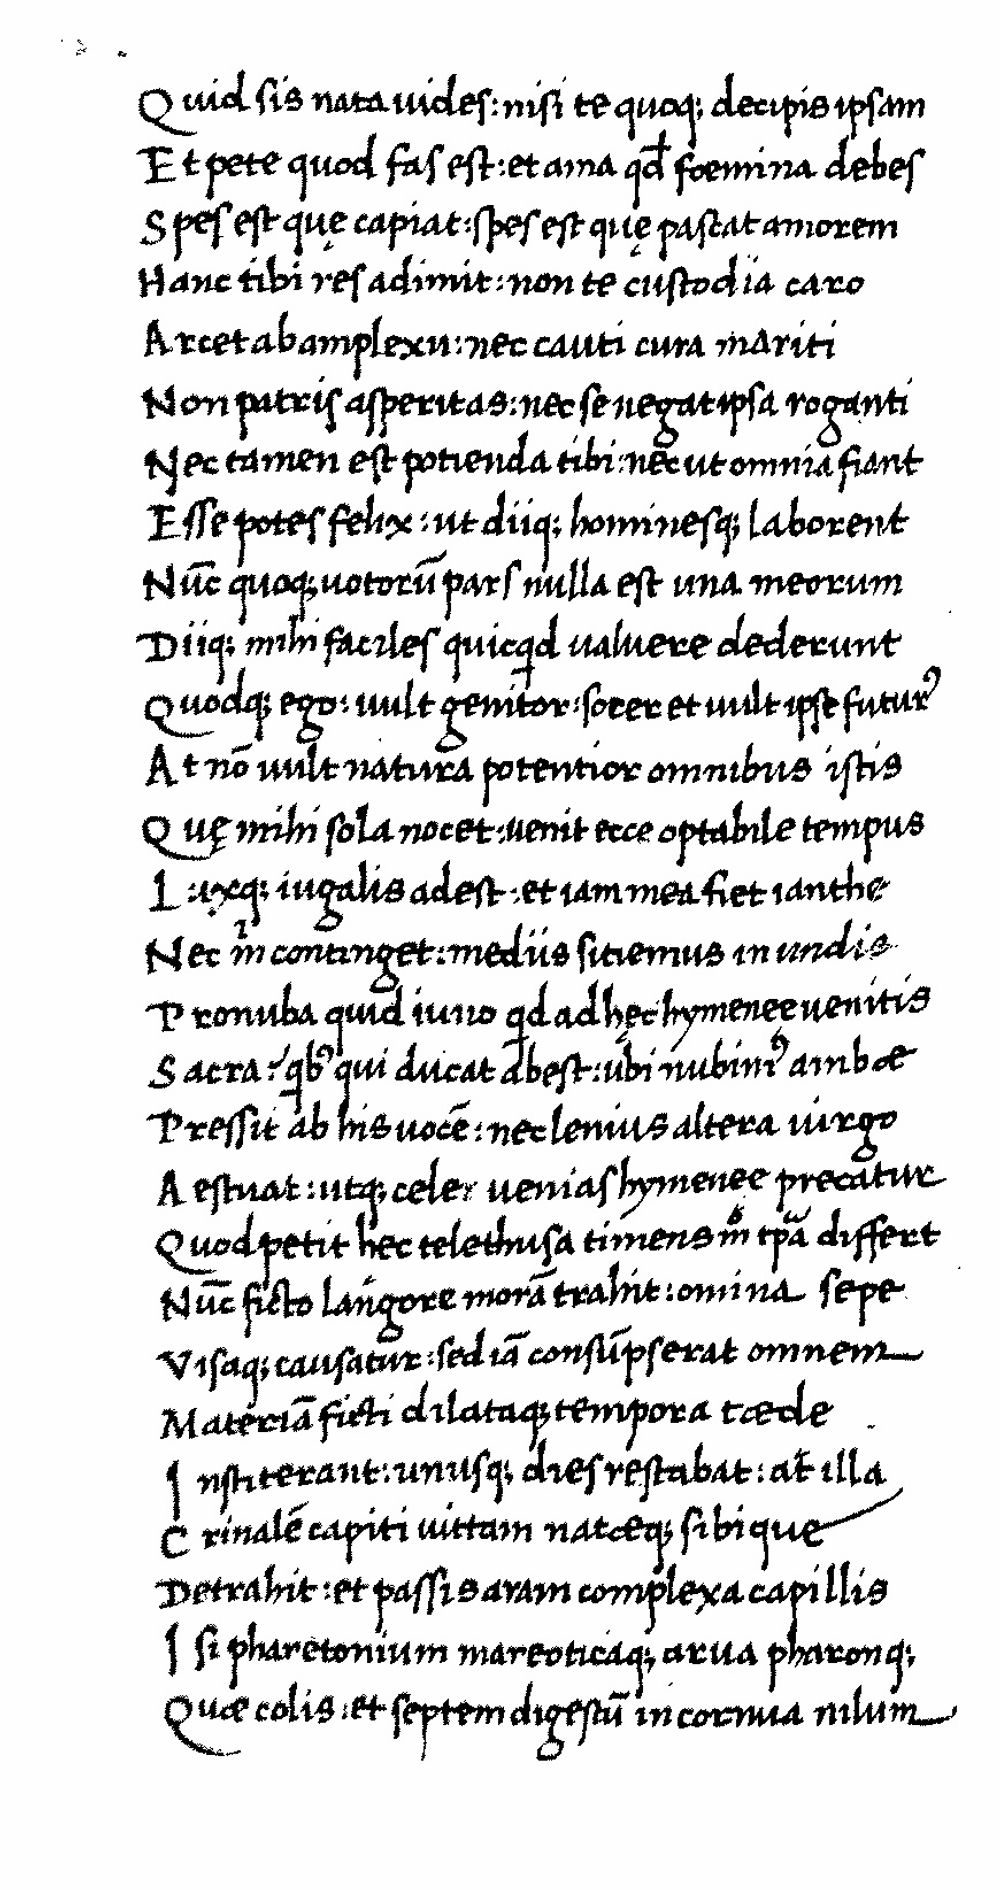 Quid sis nata uides: nisi te quoq; decipis ipsam
Et pete quod fas est: et ama qđ foemina debes
Spes est quę capiat: spes est quę pascat amorem
Hanc tibi res adimit: non te custodia caro
Arcet ab amplexu: nec cauti cura mariti
Non patris asperitas: nec se negat ipsa roganti
Nec tamen est potienda tibi: nec ut omnia fiant
Esse potes felix: ut diiq; hominesq; laborent
Nūc quoq; uotorū pars nulla est una meorum
Diiq; mihi faciles quicqd ualuere dederunt
Quodq; ego: uult genitor: socer et uult ipse futurꝰ
At nō uult natura potentior omnibus istis
Quę mihi sola nocet: uenit ecce optabile tempus
Luxq; iugalis adest: et iam mea fiet ianthe
Nec m̍ continget: mediis sitiemus in undis
Pronuba quid iuno qd ad hęc hymenęe uenitis
Sacra? qbꝰ qui ducat abest: ubi nubimꝰ ambae
Pressit ab his uocē: nec lenius altera uirgo
Aestuat: utq; celer uenias hymenee precatur
Quod petit hec telethusa timens mͦ tp̄a differt
Nūc ficto langore morā trahit: omina sepe
Visaq; causatur: sed iā consūpserat omnem
Materiā ficti dilataq; tempora taede
Institerant: unusq; dies restabat: at illa
Crinalē capiti uittam nataeq; sibique
Detrahit: et passis aram complexa capillis
Isi pharetonium mareoticaq; arua pharonq;
Quae colis: et septem digestū in cornua nilum